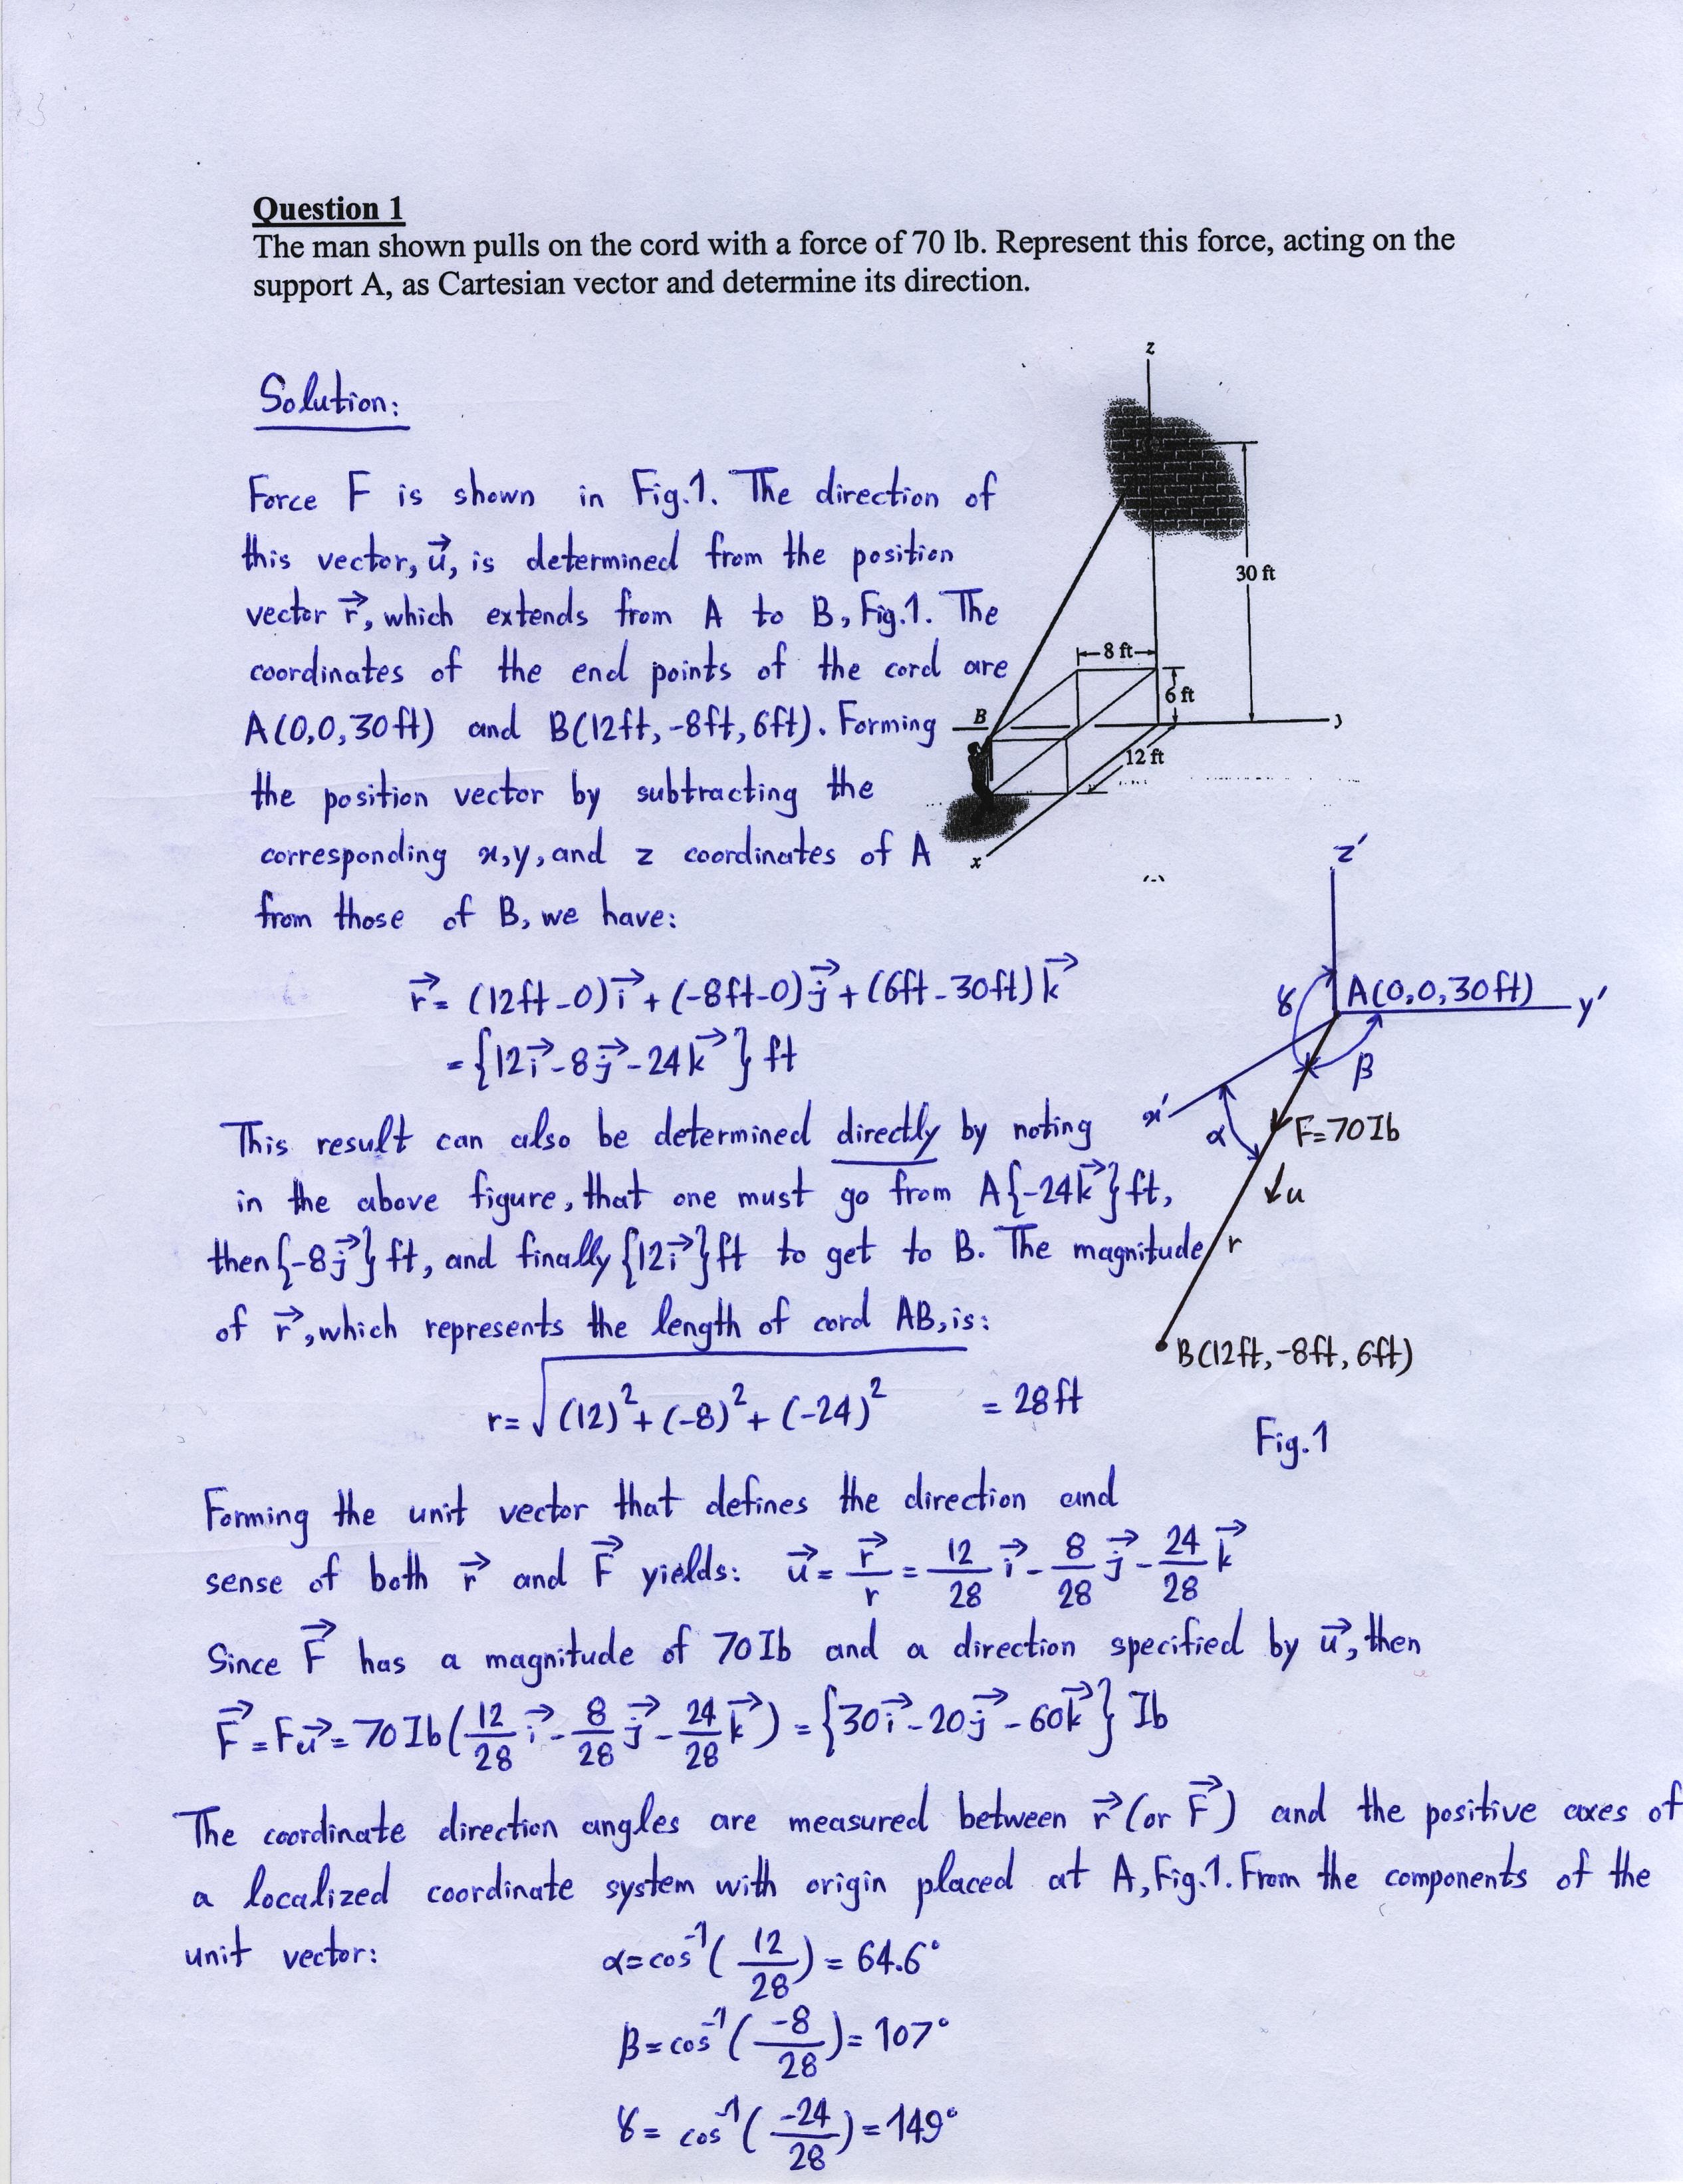 Question 1
The man shown pulls on the cord with a force of 70 lb. Represent this force, acting on the
support A, as Cartesian vector and determine its direction.
Solution:
Force F is shown in Fig.1. The direction of
this vector, u⃗, is determined from the position
vector r⃗, which extends from A to B, Fig.1. The
coordinates of the end points of the cord are
A(0,0,30ft) and B(12ft,-8ft,6ft). Forming
the position vector by subtracting the
corresponding x,y, and z coordinates of A
from those of B, we have:
r⃗= (12ft-0)i⃗+(-8ft-0)j⃗+(6ft-30ft)k⃗
={12i⃗-8j⃗-24k⃗} ft
This result can also be determined directly by noting
in the above figure, that one must go from A{-24k⃗}ft,
then{-8j⃗}ft, and finally{12i⃗}ft to get to B. The magnitude
of r⃗, which represents the length of cord AB, is:
r=√(12)²+(-8)²+(-24)² = 28ft
Forming the unit vector that defines the direction and
sense of both r⃗ and F⃗ yields: u⃗= r⃗/r = 12/28 i⃗ - 8/28 j⃗ - 24/28 k⃗
Since F⃗ has a magnitude of 70Ib and a direction specified by u⃗, then
F⃗=Fu⃗=70Ib(12/28 i⃗ - 8/28 j⃗ - 24/28 k⃗) = {30i⃗-20j⃗-60k⃗} Ib
The coordinate direction angles are measured between r⃗(or F⃗) and the positive axes of
a localized coordinate system with origin placed at A, Fig.1. From the components of the
unit vector:
α=cos⁻¹(12/28)= 64.6°
β=cos⁻¹(-8/28)= 107°
γ= cos⁻¹(-24/28)=149°
z
30 ft
8 ft
6 ft
B
12 ft
x
z'
A(0,0,30ft)
y'
γ
β
x'
α
F=70Ib
u
r
B(12ft,-8ft,6ft)
Fig.1